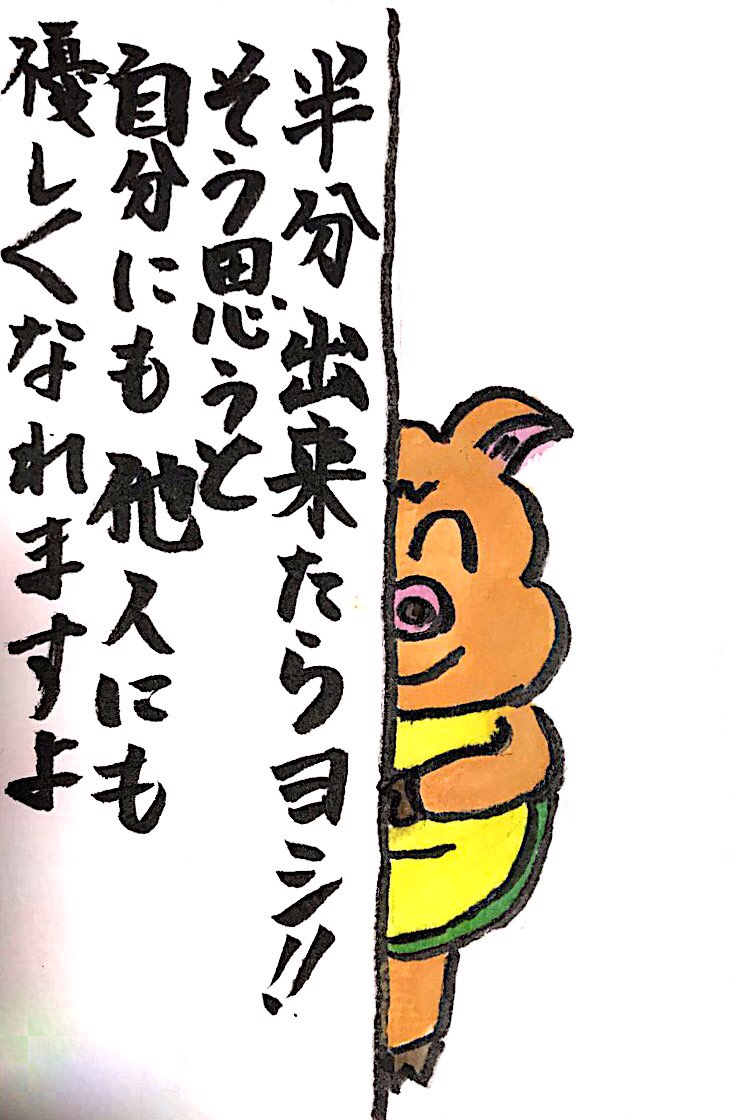 半分出来たらヨシ!!
そう思うと
自分にも他人にも
優しくなれますよ